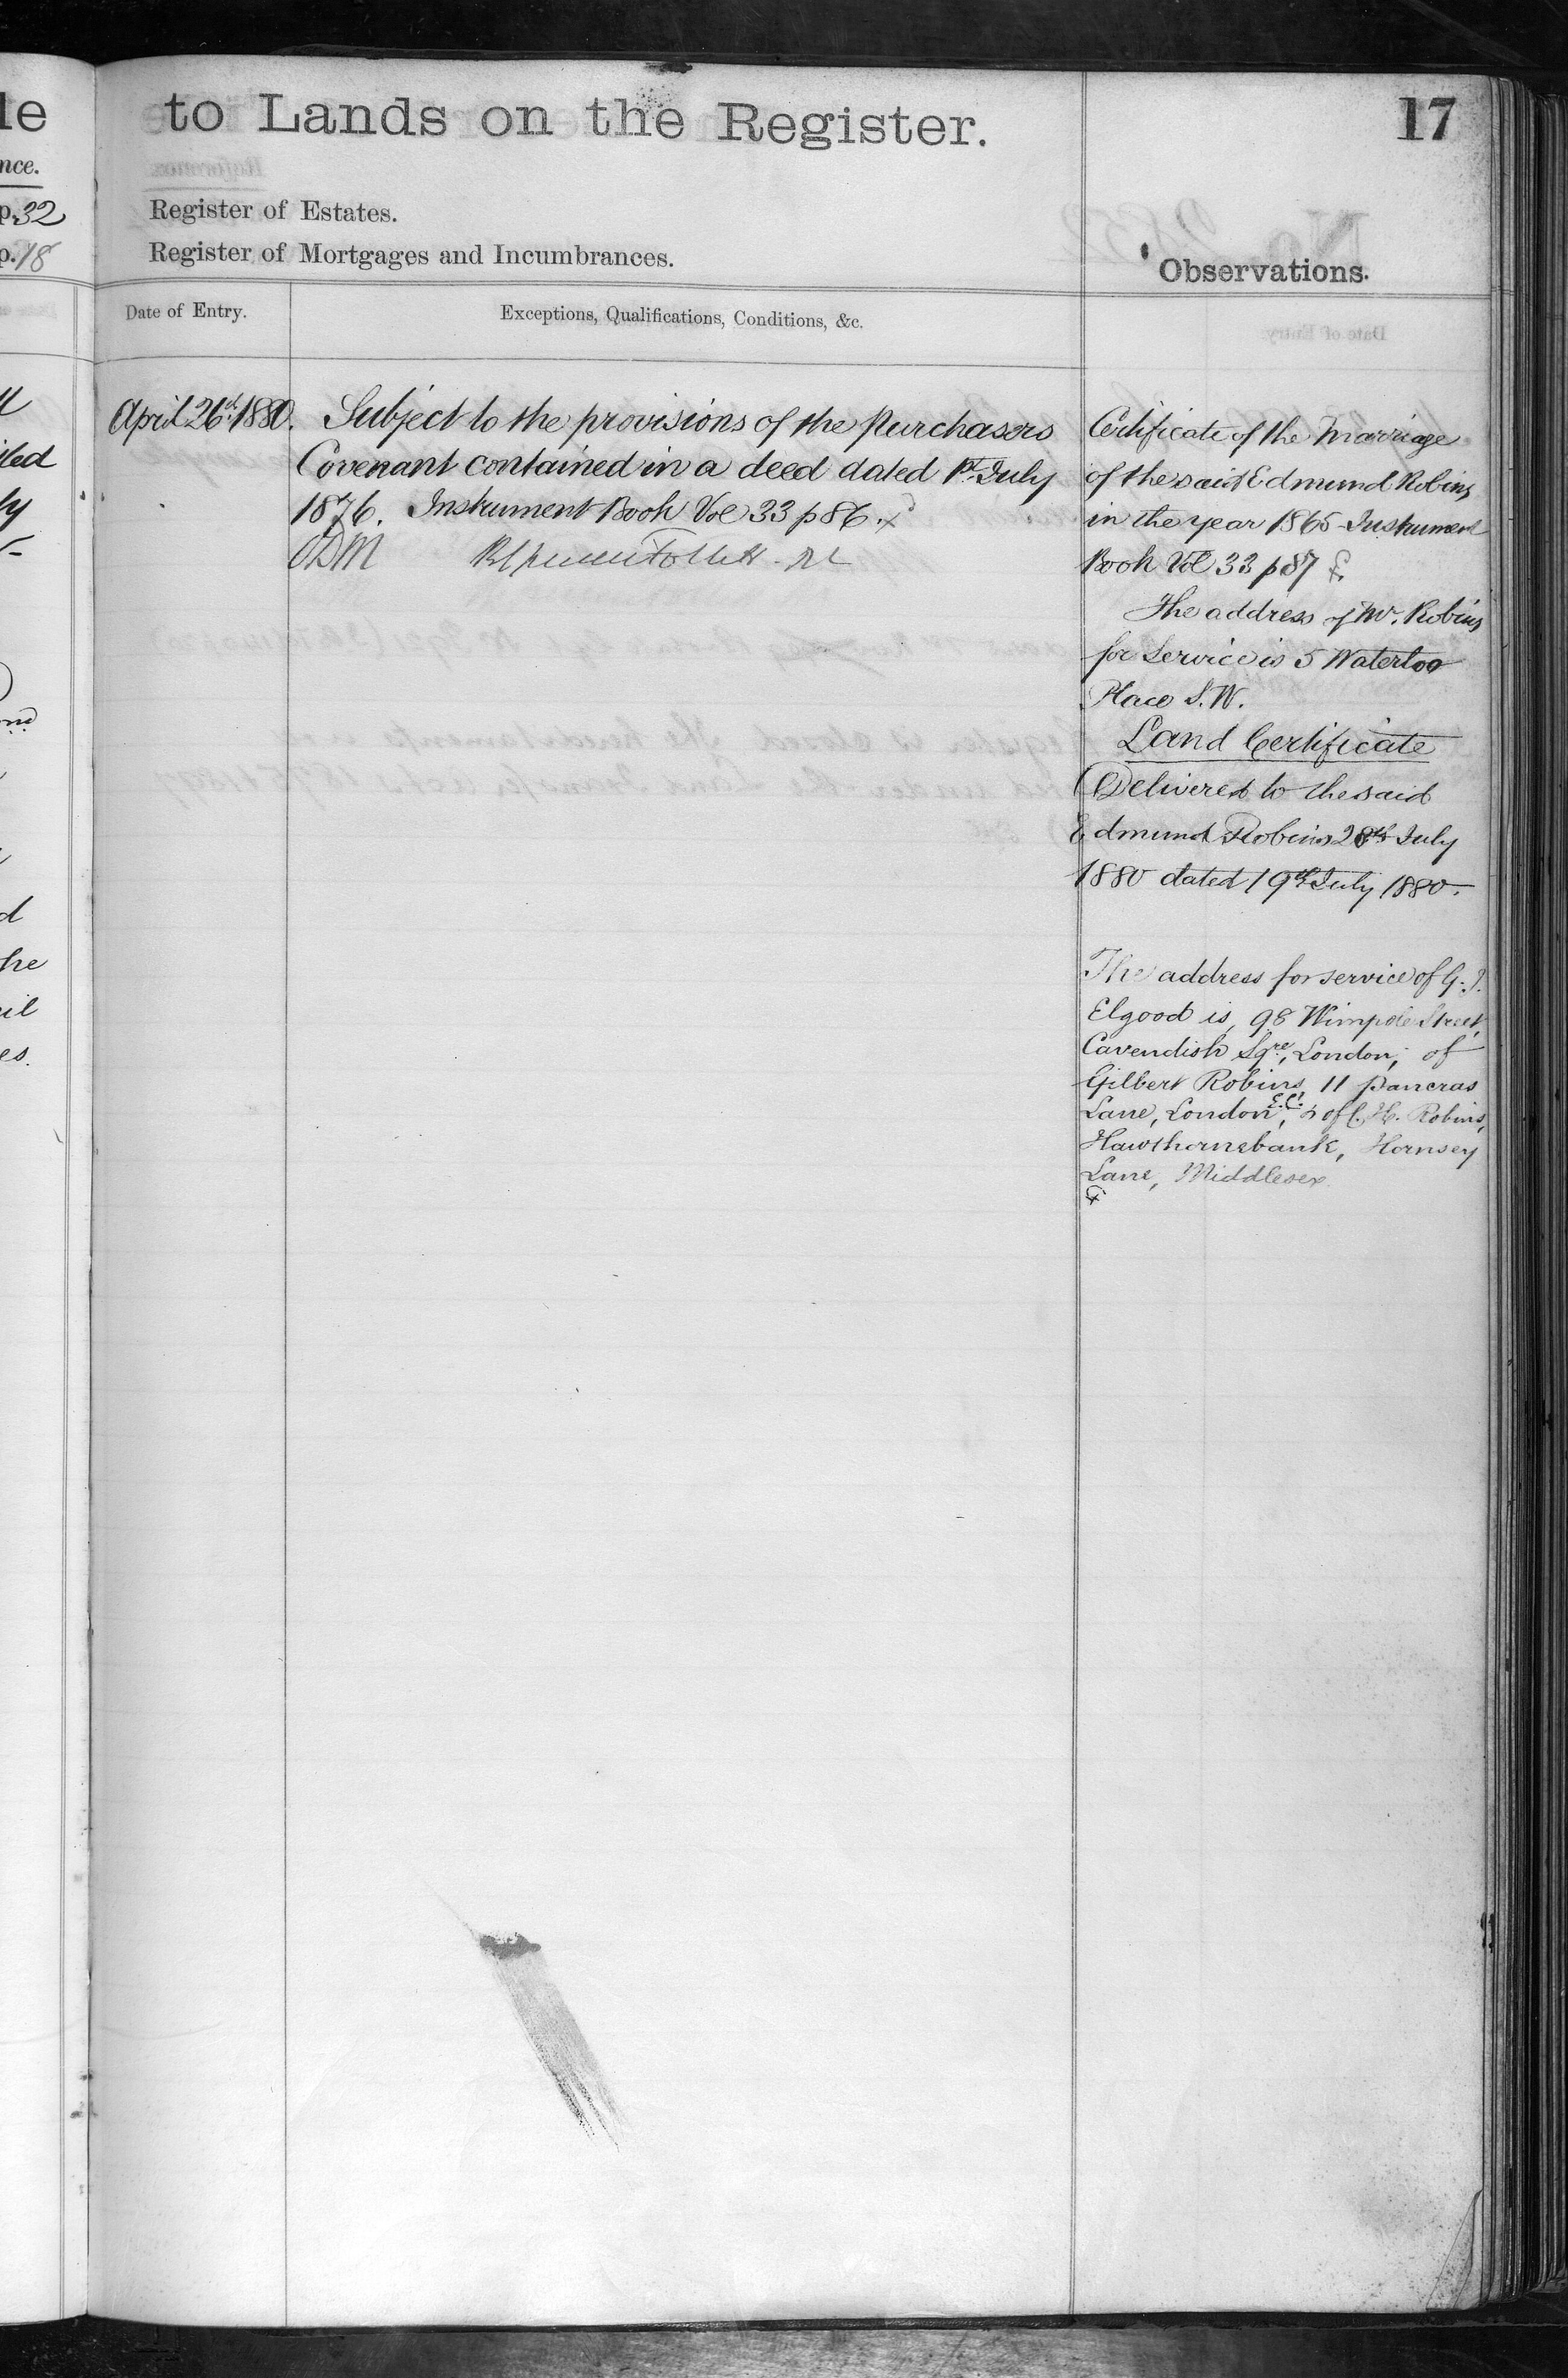 le
to Lands on the Register.
17
nce.
p. 32
Register of Estates.
p. 18
Register of Mortgages and Incumbrances.
Observations.
Date of Entry.
Exceptions, Qualifications, Conditions, &c.
April 26th 1880.
Subject to the provisions of the Purchasers
Covenant contained in a deed dated 1st July
1876. Instrument Book Vol 33 p 86.
Certificate of the Marriage
of the said Edmund Robins
in the year 1865 Instrument
Book Vol 33 p 87
The address of Mr. Robins
for Service is 5 Waterloo
Place S.W.
Land Certificate
Delivered to the said
Edmund Robins 28th July
1880 dated 19th July 1880.
The address for service of G. J.
Elgood is, 98 Wimpole Street,
Cavendish Sqre, London; of
Gilbert Robins, 11 Pancras
Lane, London, E.C. & of C. H. Robins,
Hawthornebank, Hornsey
Lane, Middlesex